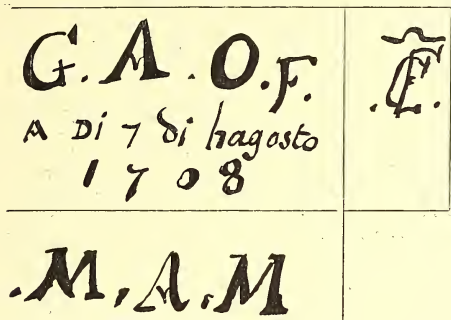 G. A. O. F.
A Di 7 di hagosto
1708
.M. A. M